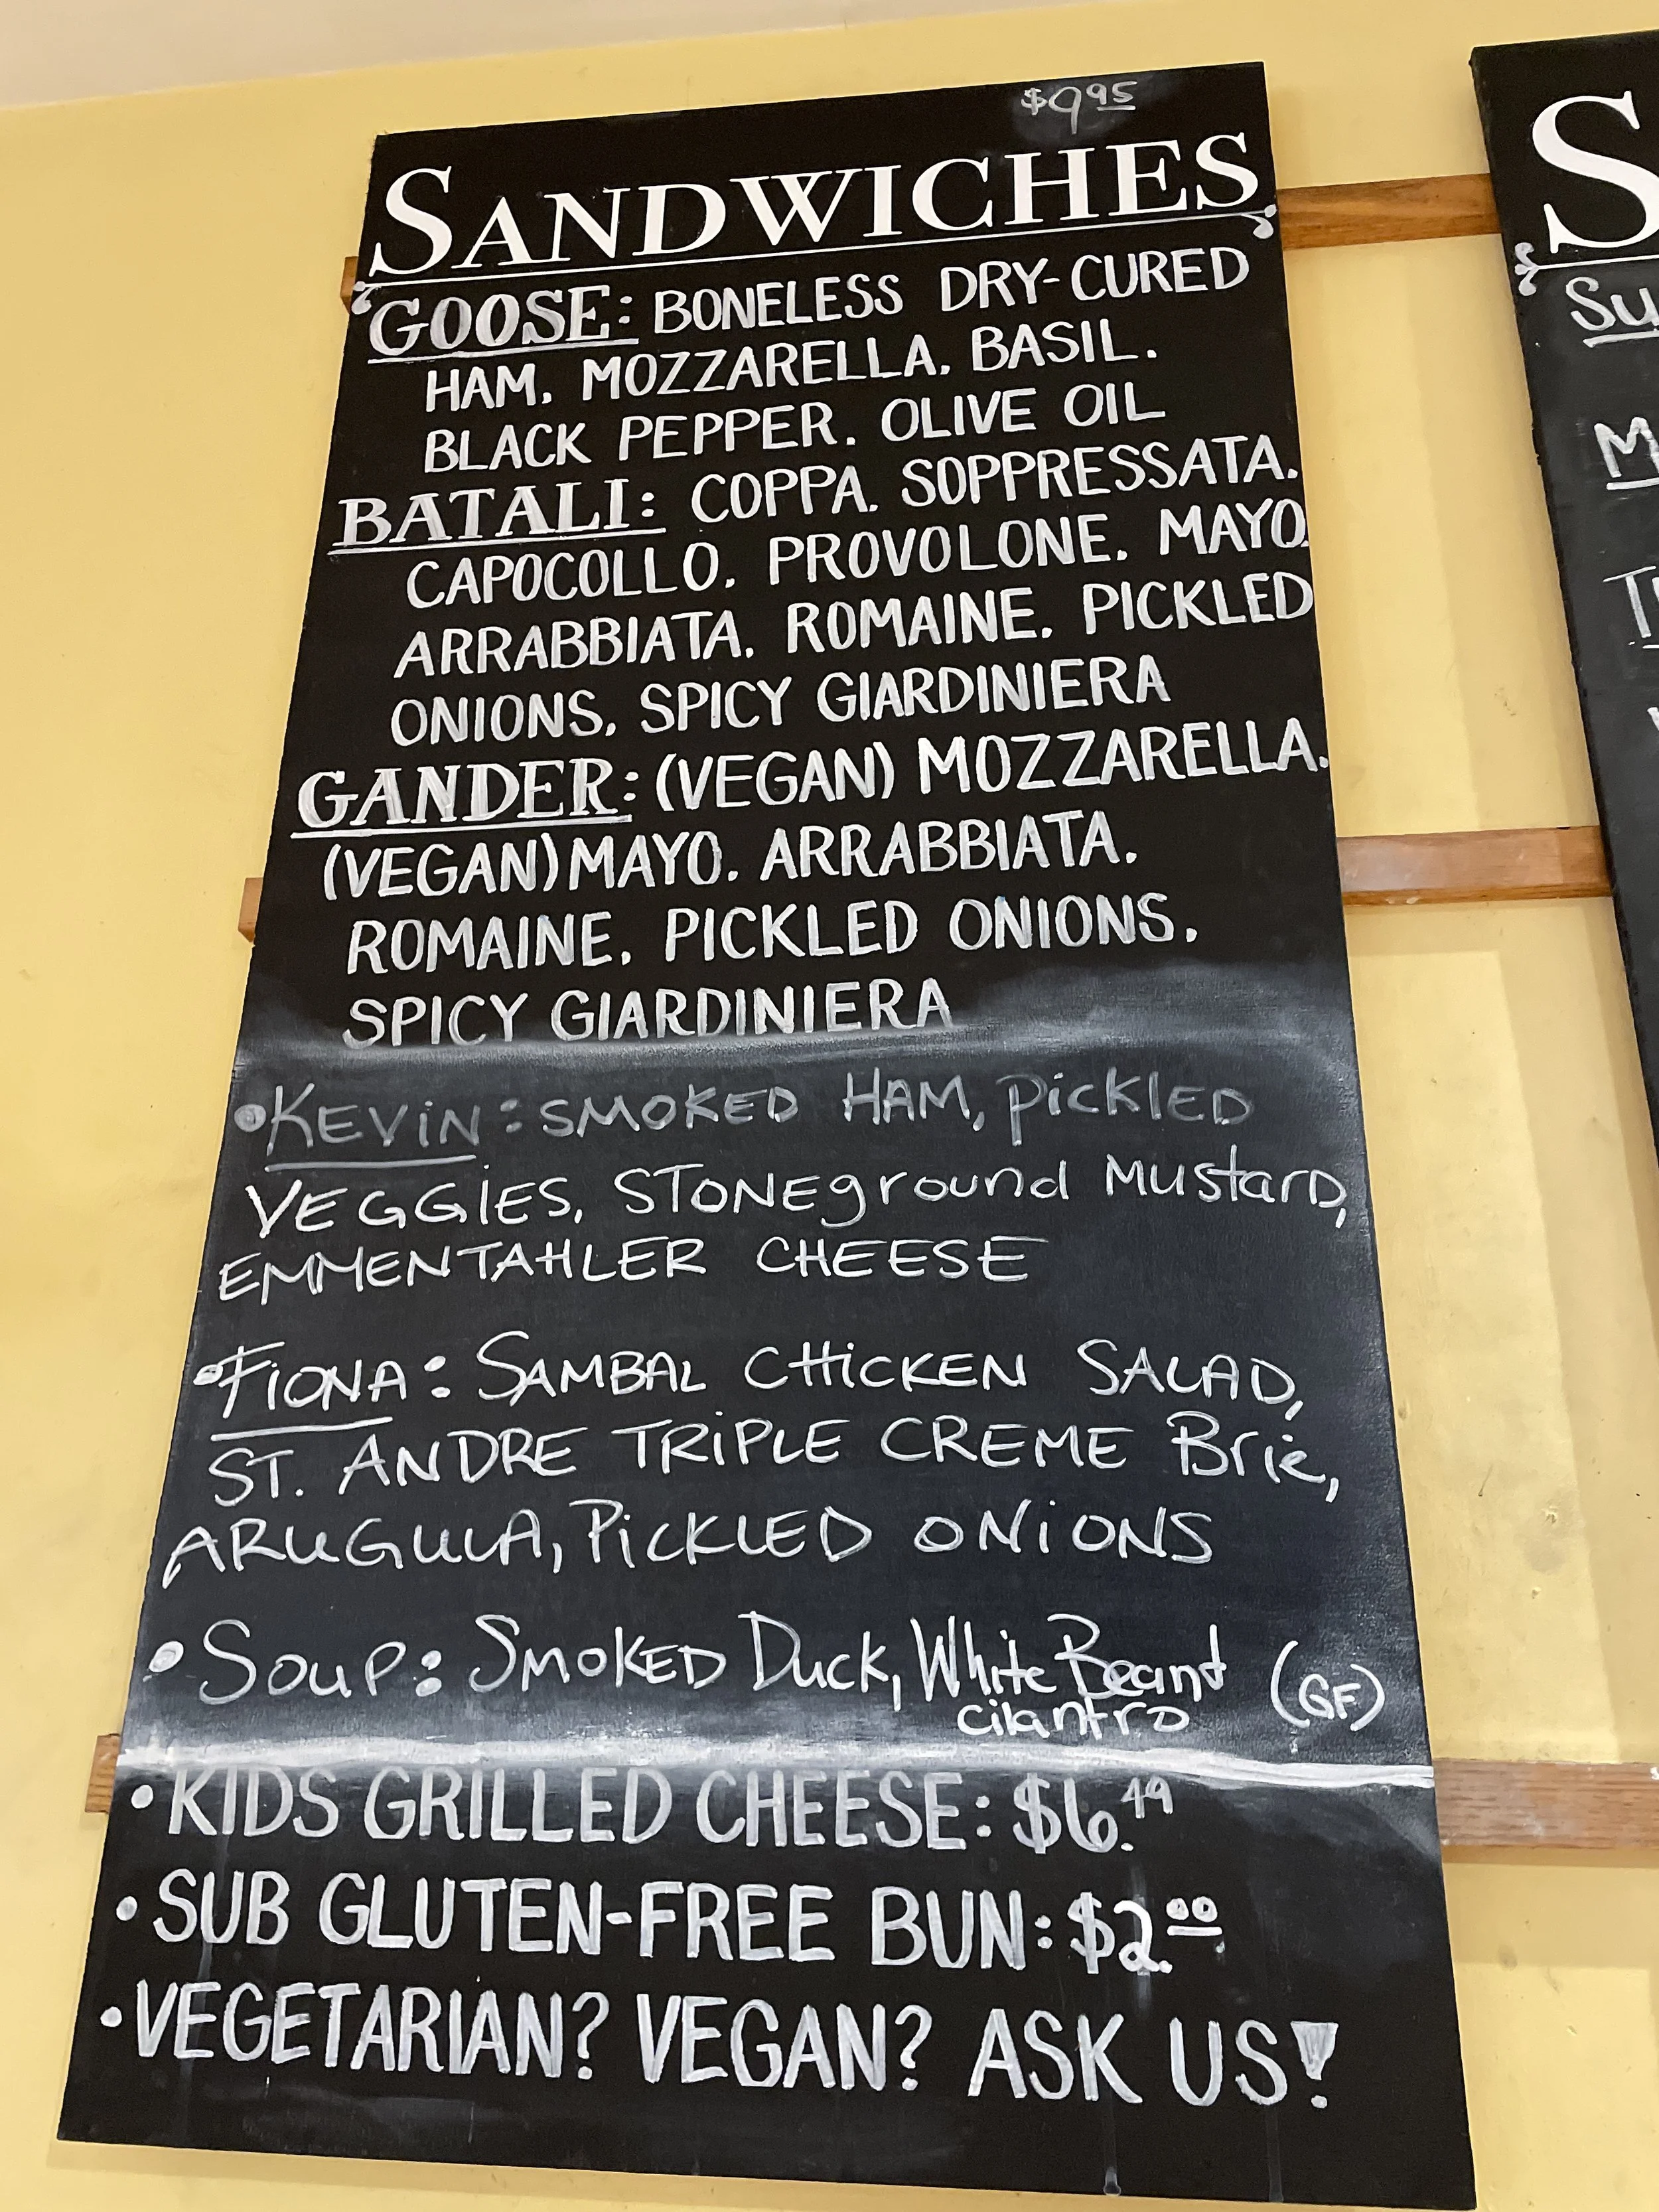 $9.95
SANDWICHES
GOOSE: BONELESS DRY-CURED
HAM. MOZZARELLA. BASIL.
BLACK PEPPER. OLIVE OIL
BATALI: COPPA. SOPPRESSATA.
CAPOCOLLO. PROVOLONE. MAYO.
ARRABBIATA. ROMAINE. PICKLED
ONIONS. SPICY GIARDINIERA
GANDER: (VEGAN) MOZZARELLA.
(VEGAN) MAYO. ARRABBIATA.
ROMAINE. PICKLED ONIONS.
SPICY GIARDINIERA
•KEViN: SMOKED HAM, PiCKLED
VEGGiES, STONEground Mustard,
EMMENTAHLER CHEESE
•FiONA: SAMBAL CHiCKEN SALAD,
ST. ANDRE TRiPLE CREME Brie,
ARUGULA, PiCKLED ONiONS
•Soup: SMOKED Duck, White Bean (GF)
cilantro
•KIDS GRILLED CHEESE: $6.49
•SUB GLUTEN-FREE BUN: $2.00
•VEGETARIAN? VEGAN? ASK US!
S
Su
M